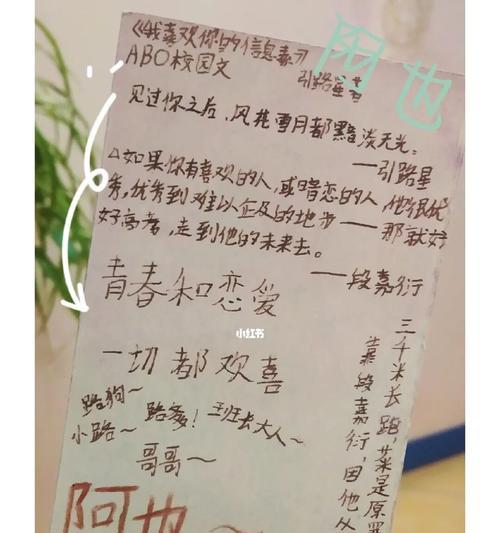 《我喜欢你的信息素》
ABO校园文
引路星著
阿也
见过你之后,风花雪月都黯淡无光。
——引路星
△如果你有喜欢的人,或暗恋的人,他很优
秀,优秀到难以企及的地步——那就好
好高考,走到他的未来去。
——段嘉衍
青春和恋爱
小红书
一切都欢喜
路狗~
小路~ 路爹! 班长大人~
哥哥~
三千米长跑,菜是原罪
嘉段嘉衍,因他从
阿也